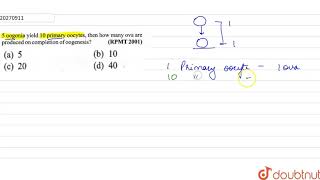 20270911
5 oogonia yield 10 primary oocytes, then how many ova are
produced on completion of oogenesis? (RPMT 2001)
(a) 5 (b) 10
(c) 20 (d) 40
1
1
1 Primary oocyte - 1 ova
10 " -
doubtnut